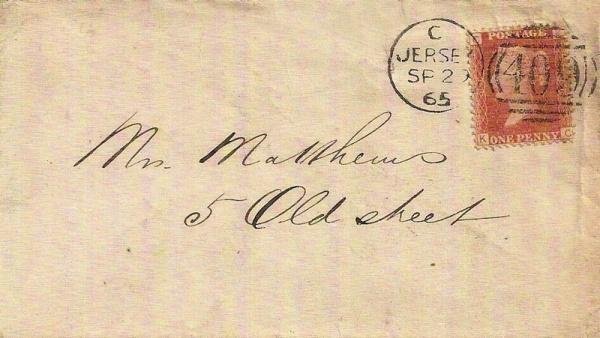 C
JERSEY
SP 29
65
POSTAGE
409
K
ONE PENNY
Mr. Matthews
5 Old street